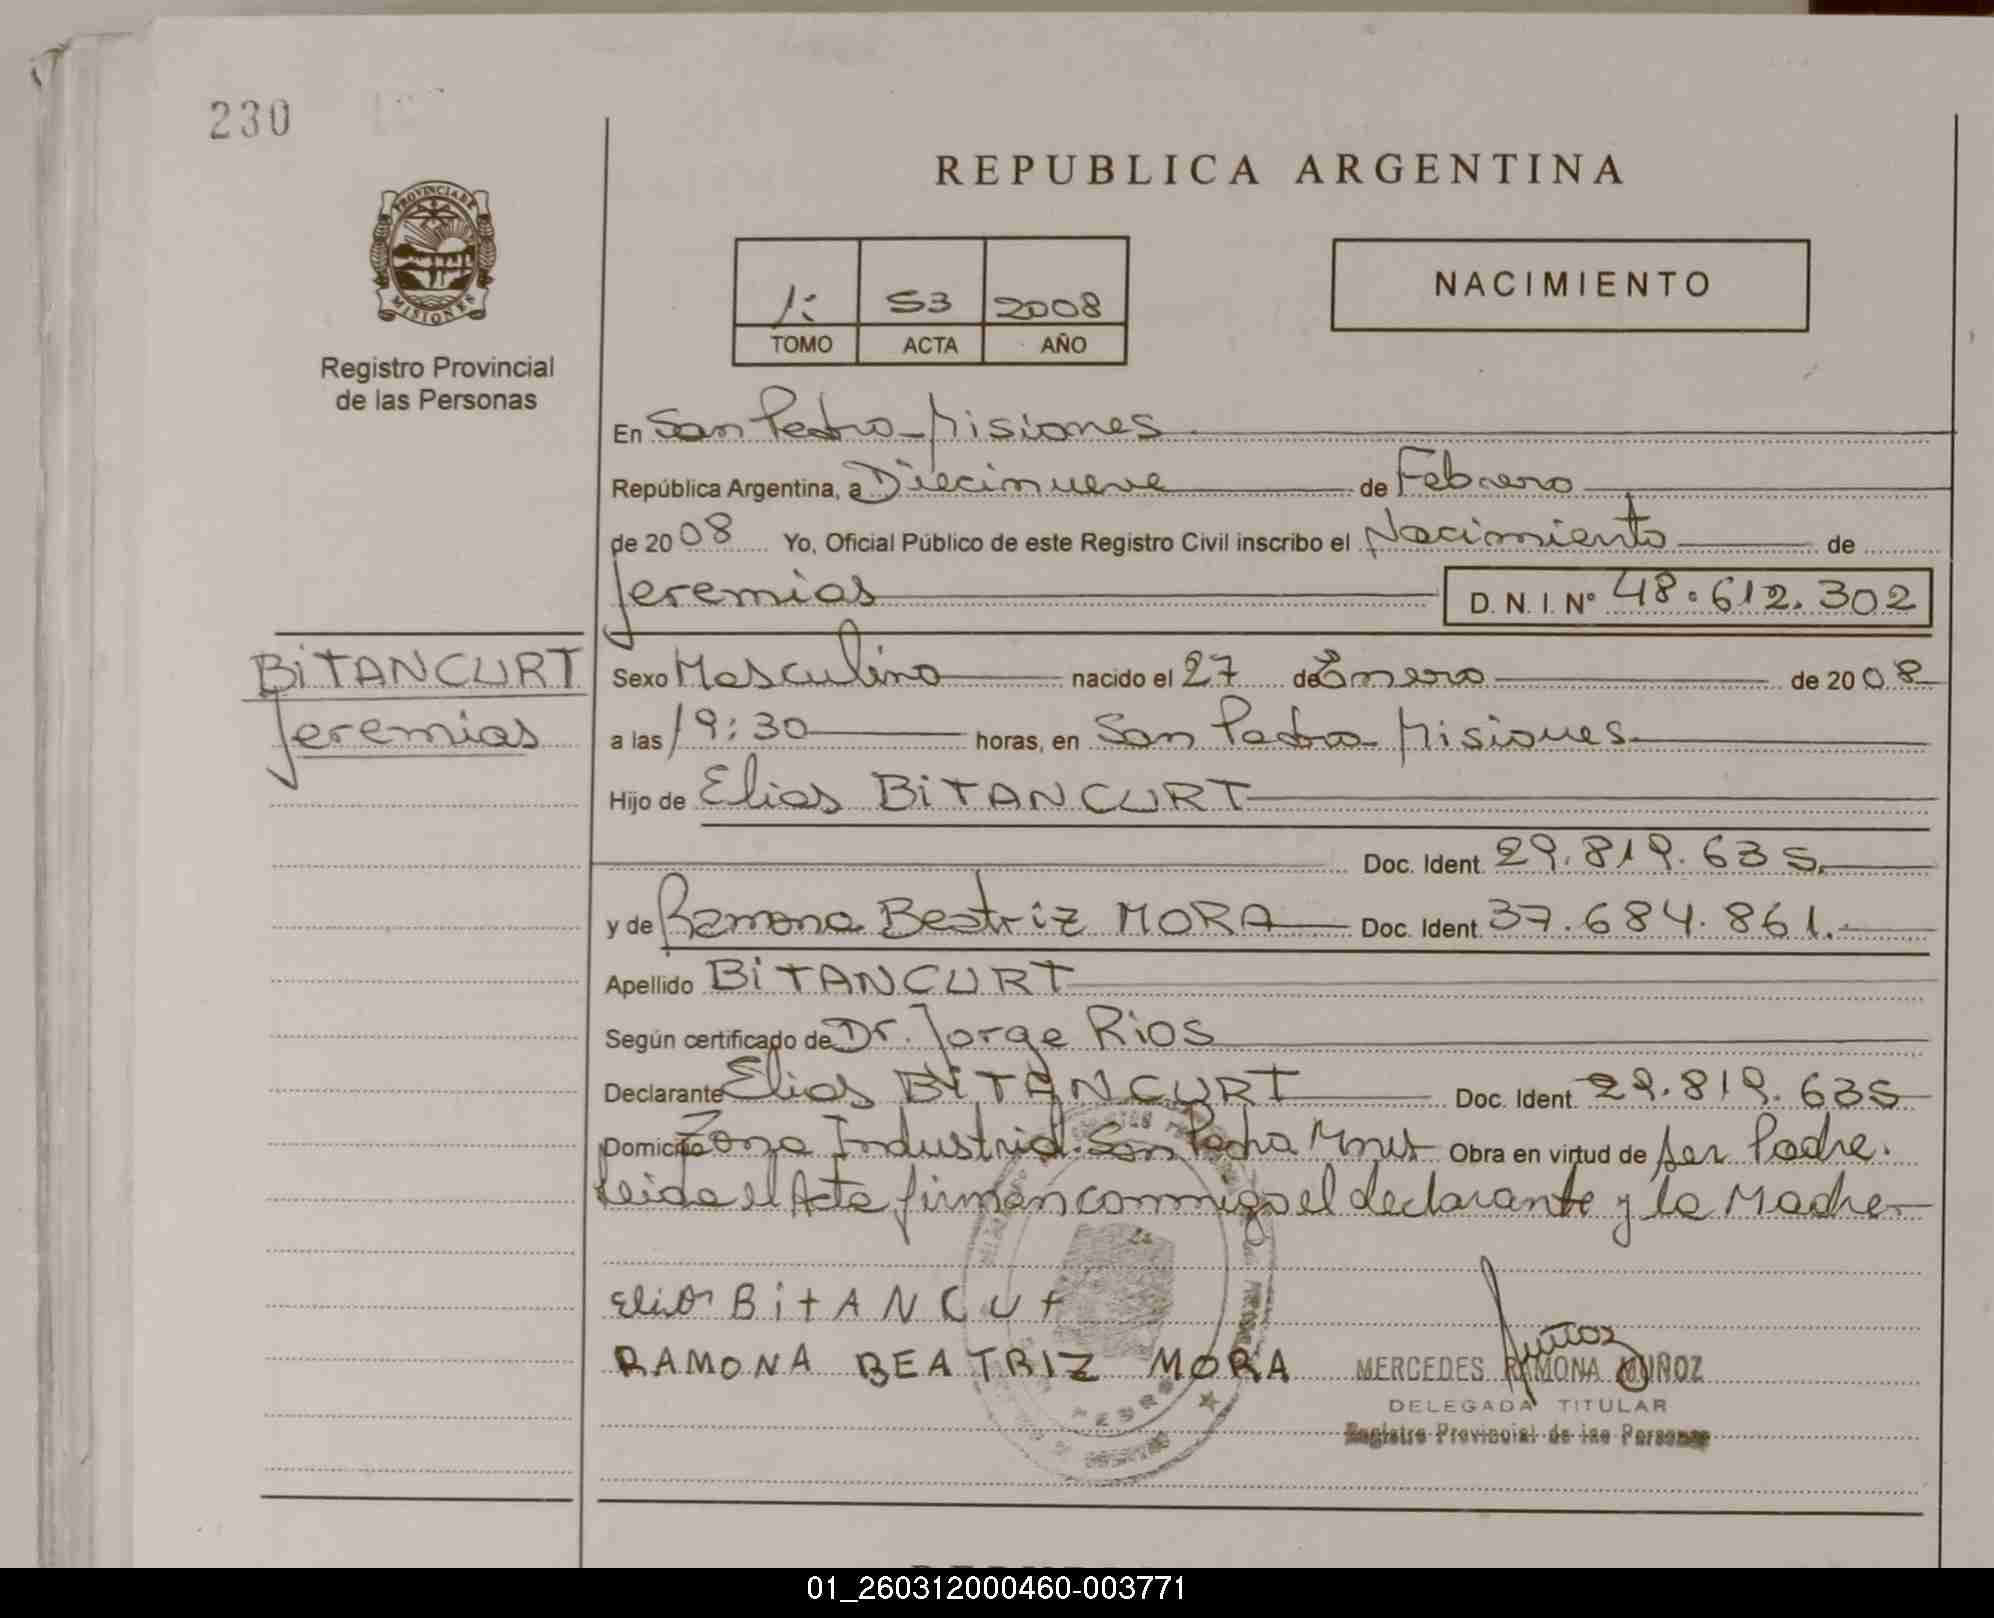 230
REPUBLICA ARGENTINA
PROVINCIA DE
MISIONES
Registro Provincial
de las Personas
1: 53 2008
TOMO ACTA AÑO
NACIMIENTO
En San Pedro - Misiones
República Argentina, a Diecinueve de Febrero
de 2008 Yo, Oficial Público de este Registro Civil inscribo el Nacimiento de
Jeremias D. N. I. N° 48.612.302
BiTANCURT
Jeremias
Sexo Masculino nacido el 27 de Enero de 2008
a las 19:30 horas, en San Pedro - Misiones
Hijo de Elias BiTANCURT
Doc. Ident. 29.819.635.
y de Ramona Beatriz MORA Doc. Ident. 37.684.861.
Apellido BiTANCURT
Según certificado de Dr. Jorge Rios
Declarante Elias BiTANCURT Doc. Ident. 29.819.635
Domicilio Zona Industrial. San Pedro Mnes Obra en virtud de ser Padre.
Leida el Acta firman conmigo el declarante y la Madre
Elias BitANCUt
RAMONA BEATRIZ MORA
MERCEDES RAMONA MUÑOZ
DELEGADA TITULAR
Registro Provincial de las Personas
01_260312000460-003771